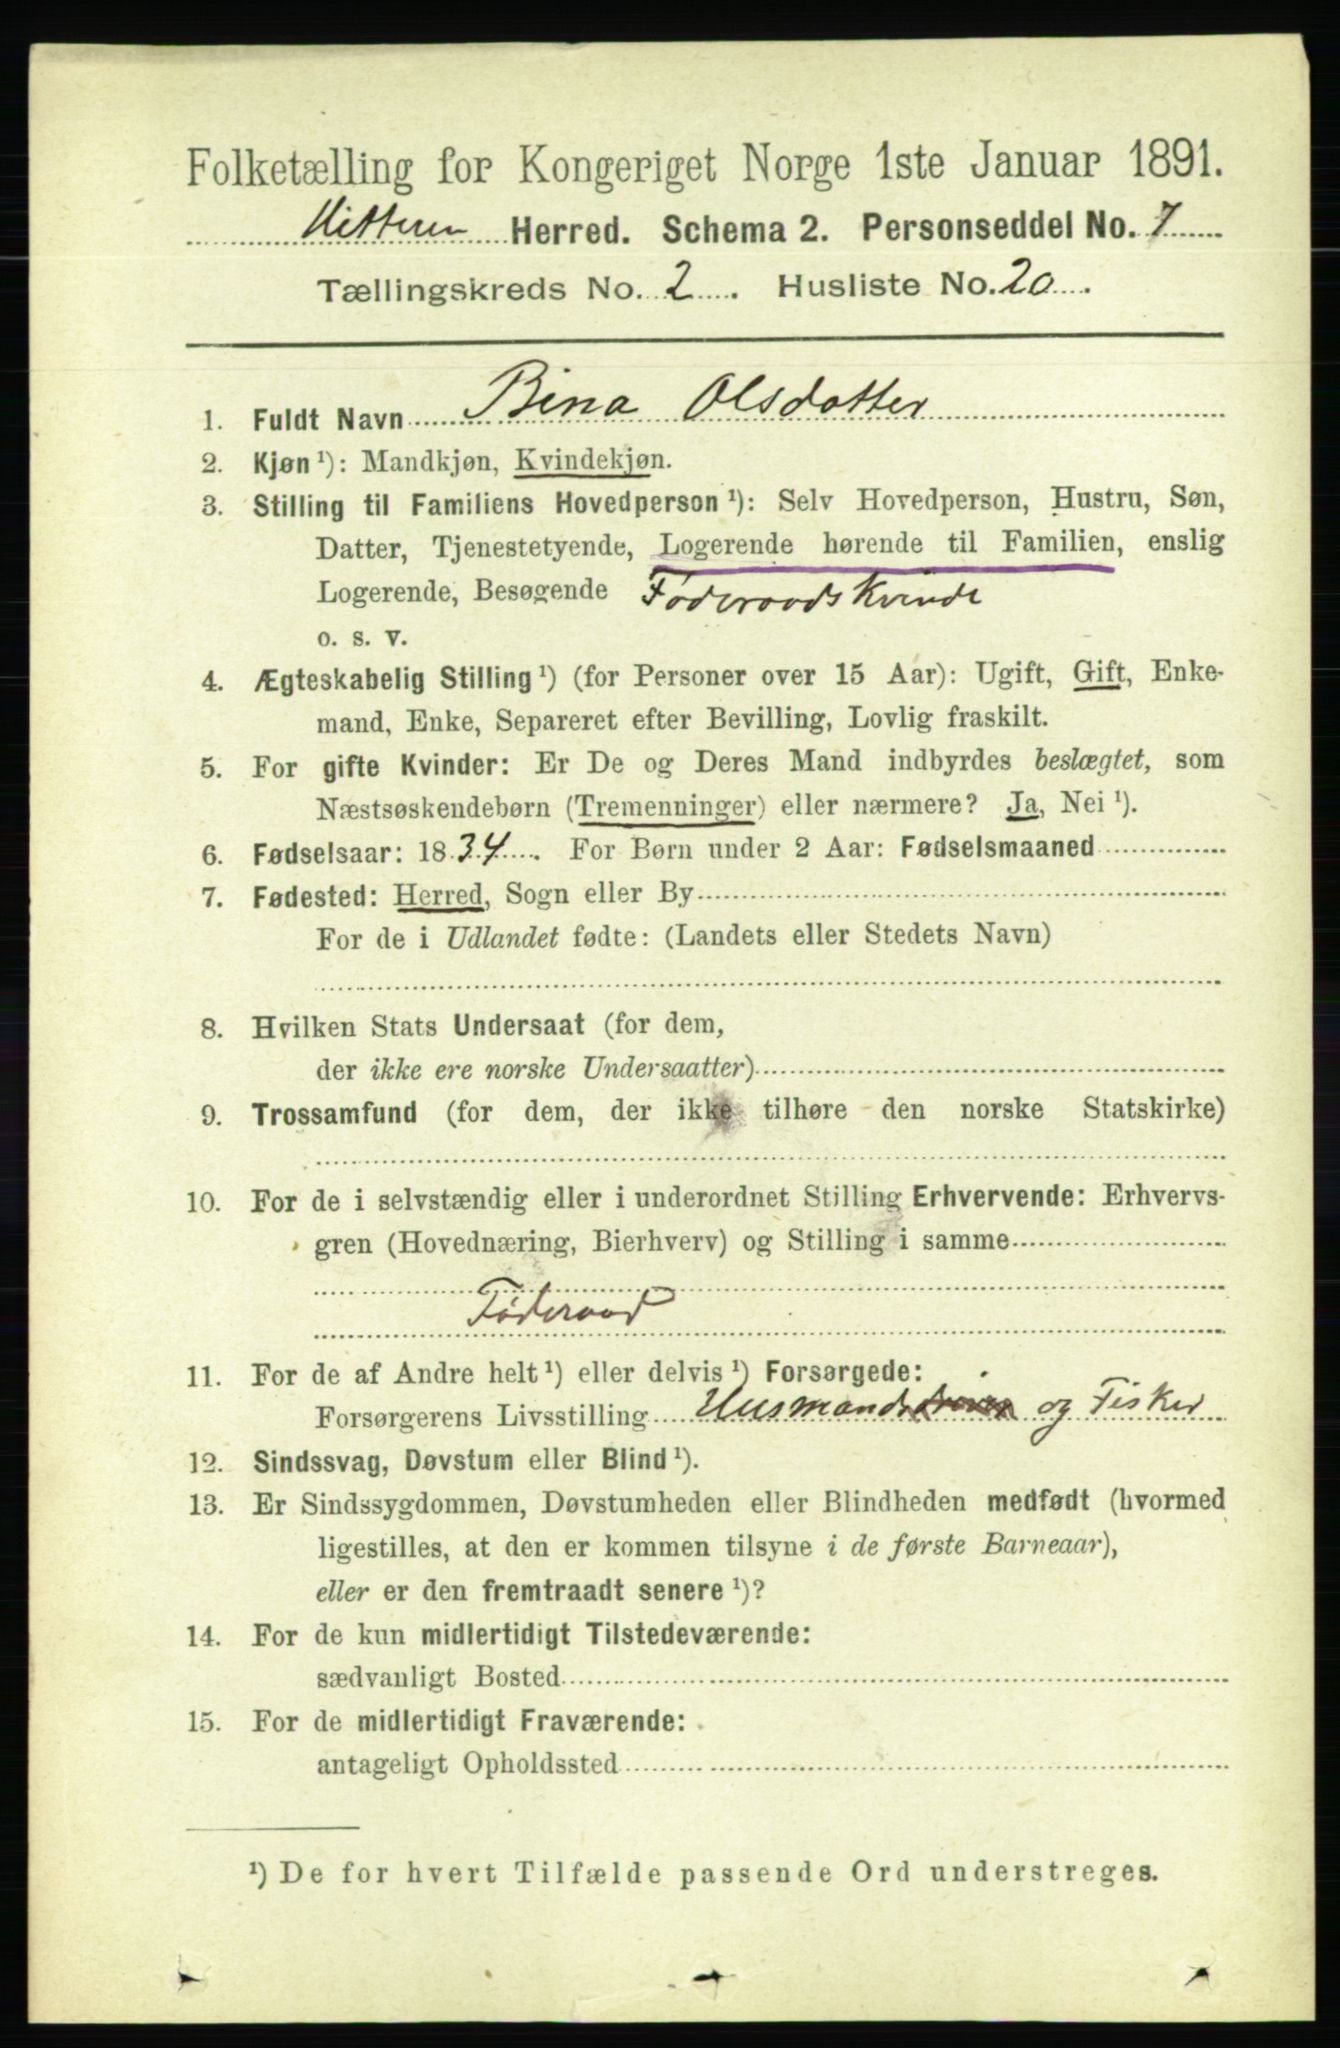 Folketælling for Kongeriget Norge 1ste Januar 1891.
Hitteren Herred. Schema 2. Personseddel No. 7
Tællingskreds No. 2. Husliste No. 20.
1. Fuldt Navn Bina Olsdatter
2. Kjøn ¹): Mandkjøn, Kvindekjøn.
3. Stilling til Familiens Hovedperson ¹): Selv Hovedperson, Hustru, Søn,
Datter, Tjenestetyende, Logerende hørende til Familien, enslig
Logerende, Besøgende Føderaadskvinde
o. s. v.
4. Ægteskabelig Stilling ¹) (for Personer over 15 Aar): Ugift, Gift, Enke-
mand, Enke, Separeret efter Bevilling, Lovlig fraskilt.
5. For gifte Kvinder: Er De og Deres Mand indbyrdes beslægtet, som
Næstsøskendebørn (Tremenninger) eller nærmere? Ja, Nei ¹).
6. Fødselsaar: 1834. For Børn under 2 Aar: Fødselsmaaned
7. Fødested: Herred, Sogn eller By
For de i Udlandet fødte: (Landets eller Stedets Navn)
8. Hvilken Stats Undersaat (for dem,
der ikke ere norske Undersaatter)
9. Trossamfund (for dem, der ikke tilhøre den norske Statskirke)
10. For de i selvstændig eller i underordnet Stilling Erhvervende: Erhvervs-
gren (Hovednæring, Bierhverv) og Stilling i samme
Føderaad
11. For de af Andre helt ¹) eller delvis ¹) Forsørgede:
Forsørgerens Livsstilling Husmand og Fisker
12. Sindssvag, Døvstum eller Blind ¹).
13. Er Sindssygdommen, Døvstumheden eller Blindheden medfødt (hvormed
ligestilles, at den er kommen tilsyne i de første Barneaar),
eller er den fremtraadt senere ¹)?
14. For de kun midlertidigt Tilstedeværende:
sædvanligt Bosted
15. For de midlertidigt Fraværende:
antageligt Opholdssted
¹) De for hvert Tilfælde passende Ord understreges.